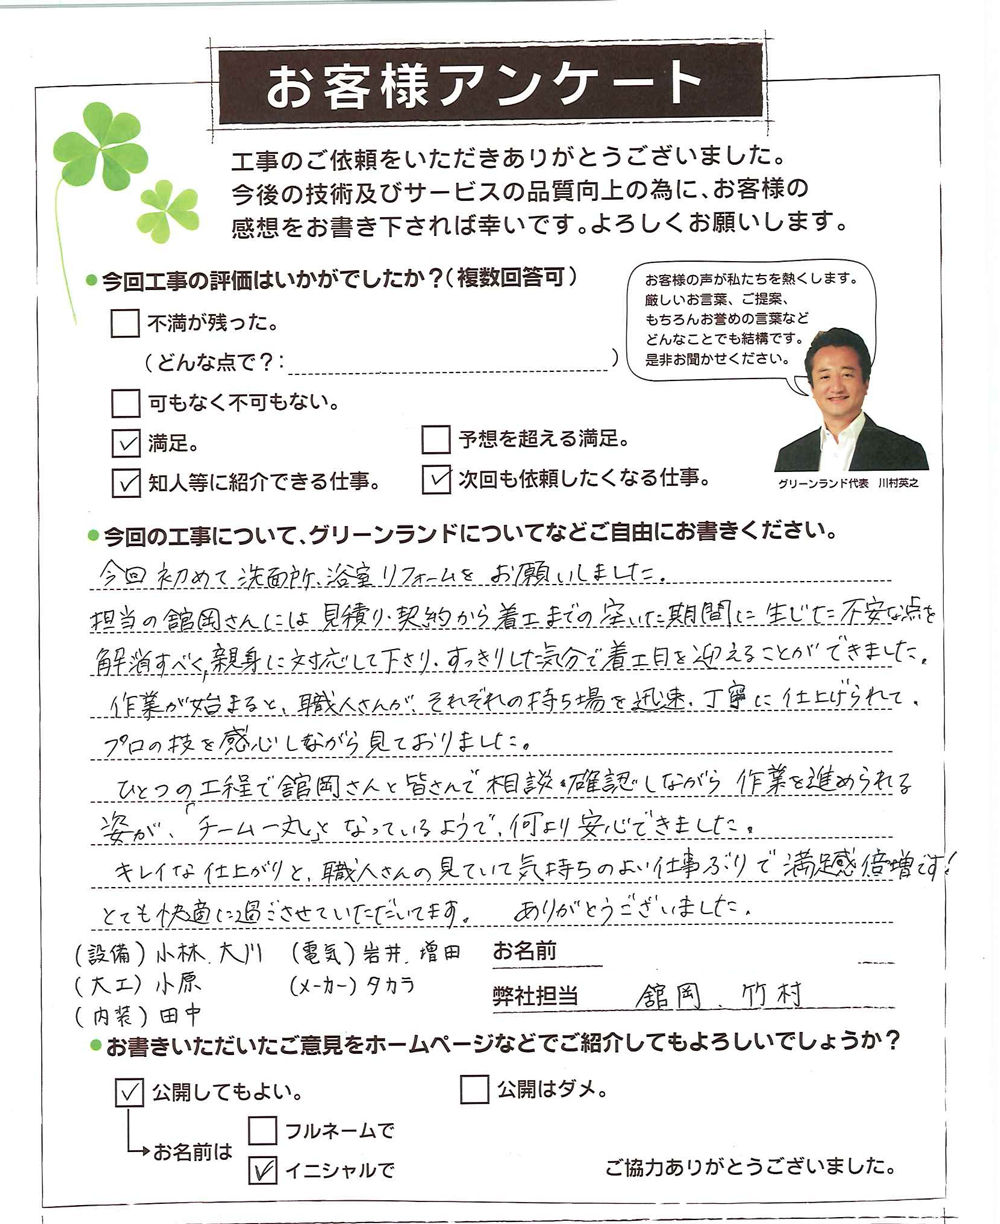 お客様アンケート
工事のご依頼をいただきありがとうございました。
今後の技術及びサービスの品質向上の為に、お客様の
感想をお書き下されば幸いです。よろしくお願いします。
●今回工事の評価はいかがでしたか?(複数回答可)
不満が残った。
(どんな点で?: )
可もなく不可もない。
満足。
予想を超える満足。
知人等に紹介できる仕事。
次回も依頼したくなる仕事。
お客様の声が私たちを熱くします。
厳しいお言葉、ご提案、
もちろんお誉めの言葉など
どんなことでも結構です。
是非お聞かせください。
グリーンランド代表 川村英之
●今回の工事について、グリーンランドについてなどご自由にお書きください。
今回初めて洗面所、浴室リフォームをお願いしました。
担当の舘岡さんには見積り・契約から着工までの空いた期間に生じた不安な点を
解消すべく、親身に対応して下さり、すっきりした気分で着工日を迎えることができました。
作業が始まると、職人さんが、それぞれの持ち場を迅速、丁寧に仕上げられて、
プロの技を感心しながら見ておりました。
ひとつの工程で舘岡さんと皆さんで相談・確認しながら作業を進められる
姿が、「チーム一丸」となっているようで、何より安心できました。
キレイな仕上がりと、職人さんの見ていて気持ちのよい仕事ぶりで満足感倍増です!
とても快適に過ごさせていただいてます。 ありがとうございました。
(設備)小林、大川 (電気)岩井、増田
(大工)小原 (メーカー)タカラ
(内装)田中
お名前
弊社担当 舘岡、竹村
●お書きいただいたご意見をホームページなどでご紹介してもよろしいでしょうか?
公開してもよい。
公開はダメ。
お名前は
フルネームで
イニシャルで
ご協力ありがとうございました。